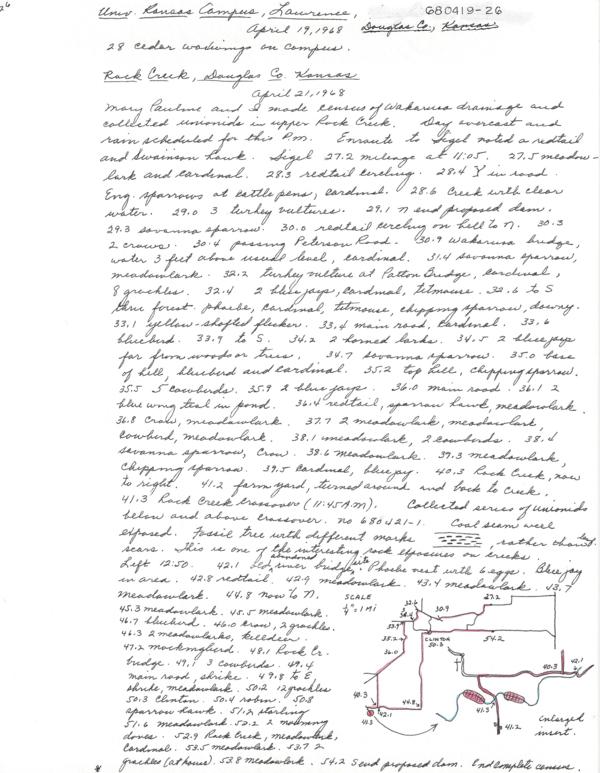 26
Univ. Kansas Campus, Lawrence, 680419-26
April 19, 1968 Douglas Co., Kansas
28 cedar waxwings on campus.
Rock Creek, Douglas Co. Kansas
April 21, 1968
Mary Pauline and I made census of Wakarusa drainage and
collected unionids in upper Rock Creek. Day overcast and
rain scheduled for this P.M. Enroute to Sigel noted a redtail
and Swainson hawk. Sigel 27.2 mileage at 11:05. 27.5 meadow-
lark and cardinal. 28.3 redtail circling. 28.4 Y in road.
Eng. sparrows at cattle pens, cardinal. 28.6 Creek with clear
water. 29.0 3 turkey vultures. 29.1 N end proposed dam.
29.3 savanna sparrow. 30.0 redtail circling on hell to N. 30.3
2 crows. 30.4 passing Peterson Road. 30.9 Wakarusa bridge,
water 3 feet above usual level, cardinal. 31.4 savanna sparrow,
meadowlark. 32.2 turkey vulture at Patton Bridge, cardinal,
8 grackles. 32.4 2 blue jays, cardinal, titmouse. 32.6 to S
thru forest. phoebe, cardinal, titmouse, chipping sparrow, downy.
33.1 yellow-shafted flicker. 33.4 main road, cardinal. 33.6
bluebird. 33.9 to S. 34.2 2 horned larks. 34.5 2 blue jays
far from woods or trees. 34.7 savanna sparrow. 35.0 base
of hill, bluebird and cardinal. 35.2 top hill, chipping sparrow.
35.5 5 cowbirds. 35.9 2 blue jays. 36.0 main road. 36.1 2
blue wing teal in pond. 36.4 redtail, sparrow hawk, meadowlark.
36.8 crow, meadowlark. 37.7 2 meadowlark, meadowlark,
cowbird, meadowlark. 38.1 meadowlark, 2 cowbirds. 38.4
savanna sparrow, crow. 38.6 meadowlark. 39.3 meadowlark,
chipping sparrow. 39.5 cardinal, blue jay. 40.3 Rock Creek, now
to right. 41.2 farm yard, turned around and back to creek.
41.3 Rock Creek crossover (11:45 A.M). Collected series of unionids
below and above crossover. no 680421-1. Coal seam well
exposed. Fossil tree with different marks , rather than leaf
scars. This is one of the interesting rock exposures on creeks.
Left 12:50. 42.1 old abandoned river bridge site. Phoebe nest with 6 eggs. Blue jay
in area. 42.8 redtail. 42.9 meadowlark. 43.4 meadowlark. 43.7
meadowlark. 44.8 now to N.
45.3 meadowlark. 45.5 meadowlark.
46.7 bluebird. 46.0 crow, 2 grackles.
46.3 2 meadowlarks, killdeer.
47.2 mockingbird. 48.1 Rock Cr.
bridge. 49.1 3 cowbirds. 49.4
main road, shrike. 49.8 to E,
shrike, meadowlark. 50.2 12 grackles
50.3 Clinton. 50.4 robin. 50.8
sparrow hawk. 51.2 starling
51.6 meadowlark. 52.2 2 mourning
doves. 52.9 Rock Creek, meadowlark,
cardinal. 53.5 meadowlark. 53.7 2
grackles (at house). 53.8 meadowlark. 54.2 S end proposed dam. End complete census.
SCALE
¼" = 1 Mi
32.6
27.2
33.4
30.9
33.9
35.2
CLINTON
50.3
54.2
36.0
40.3
42.1
40.3
44.8
41.3
41.3
42.1
41.2
Enlarged
insert.